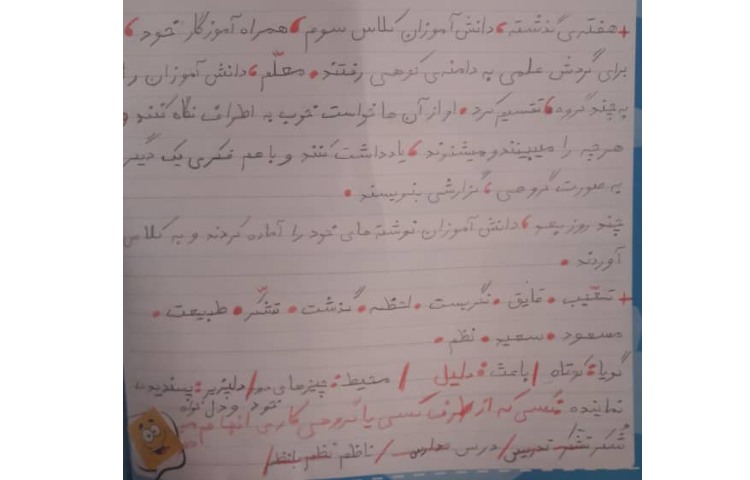 + هفته‌ی گذشته، دانش‌آموزان کلاس سوم، همراه آموزگار خود،
برای گردش علمی به دامنه‌ی کوهی رفتند. معلّم، دانش‌آموزان را
به چند گروه، تقسیم کرد. او از آن ها خواست خوب به اطراف نگاه کنند و
هرچه را میبینند و میشنوند، یادداشت کنند و با هم فکری یک دیگر
به صورت گروهی، گزارشی بنویسند.
چند روز بعد، دانش‌آموزان نوشته های خود را آماده کردند و به کلاس
آوردند.
+ تعقیب. قایق. نگریست. لحظه. گذشت. تشکّر. طبیعت.
مسعود. سعید. نظم.
گویا: کوتاه / باعث: دلیل / محیط: چیزهای / دلپذیر: پسندیده
نماینده: کسی که از طرف کسی یا گروهی کاری انجام
خود و دل‌خواه
تشکر / تدریس / درس مدرس / ناظم نظم